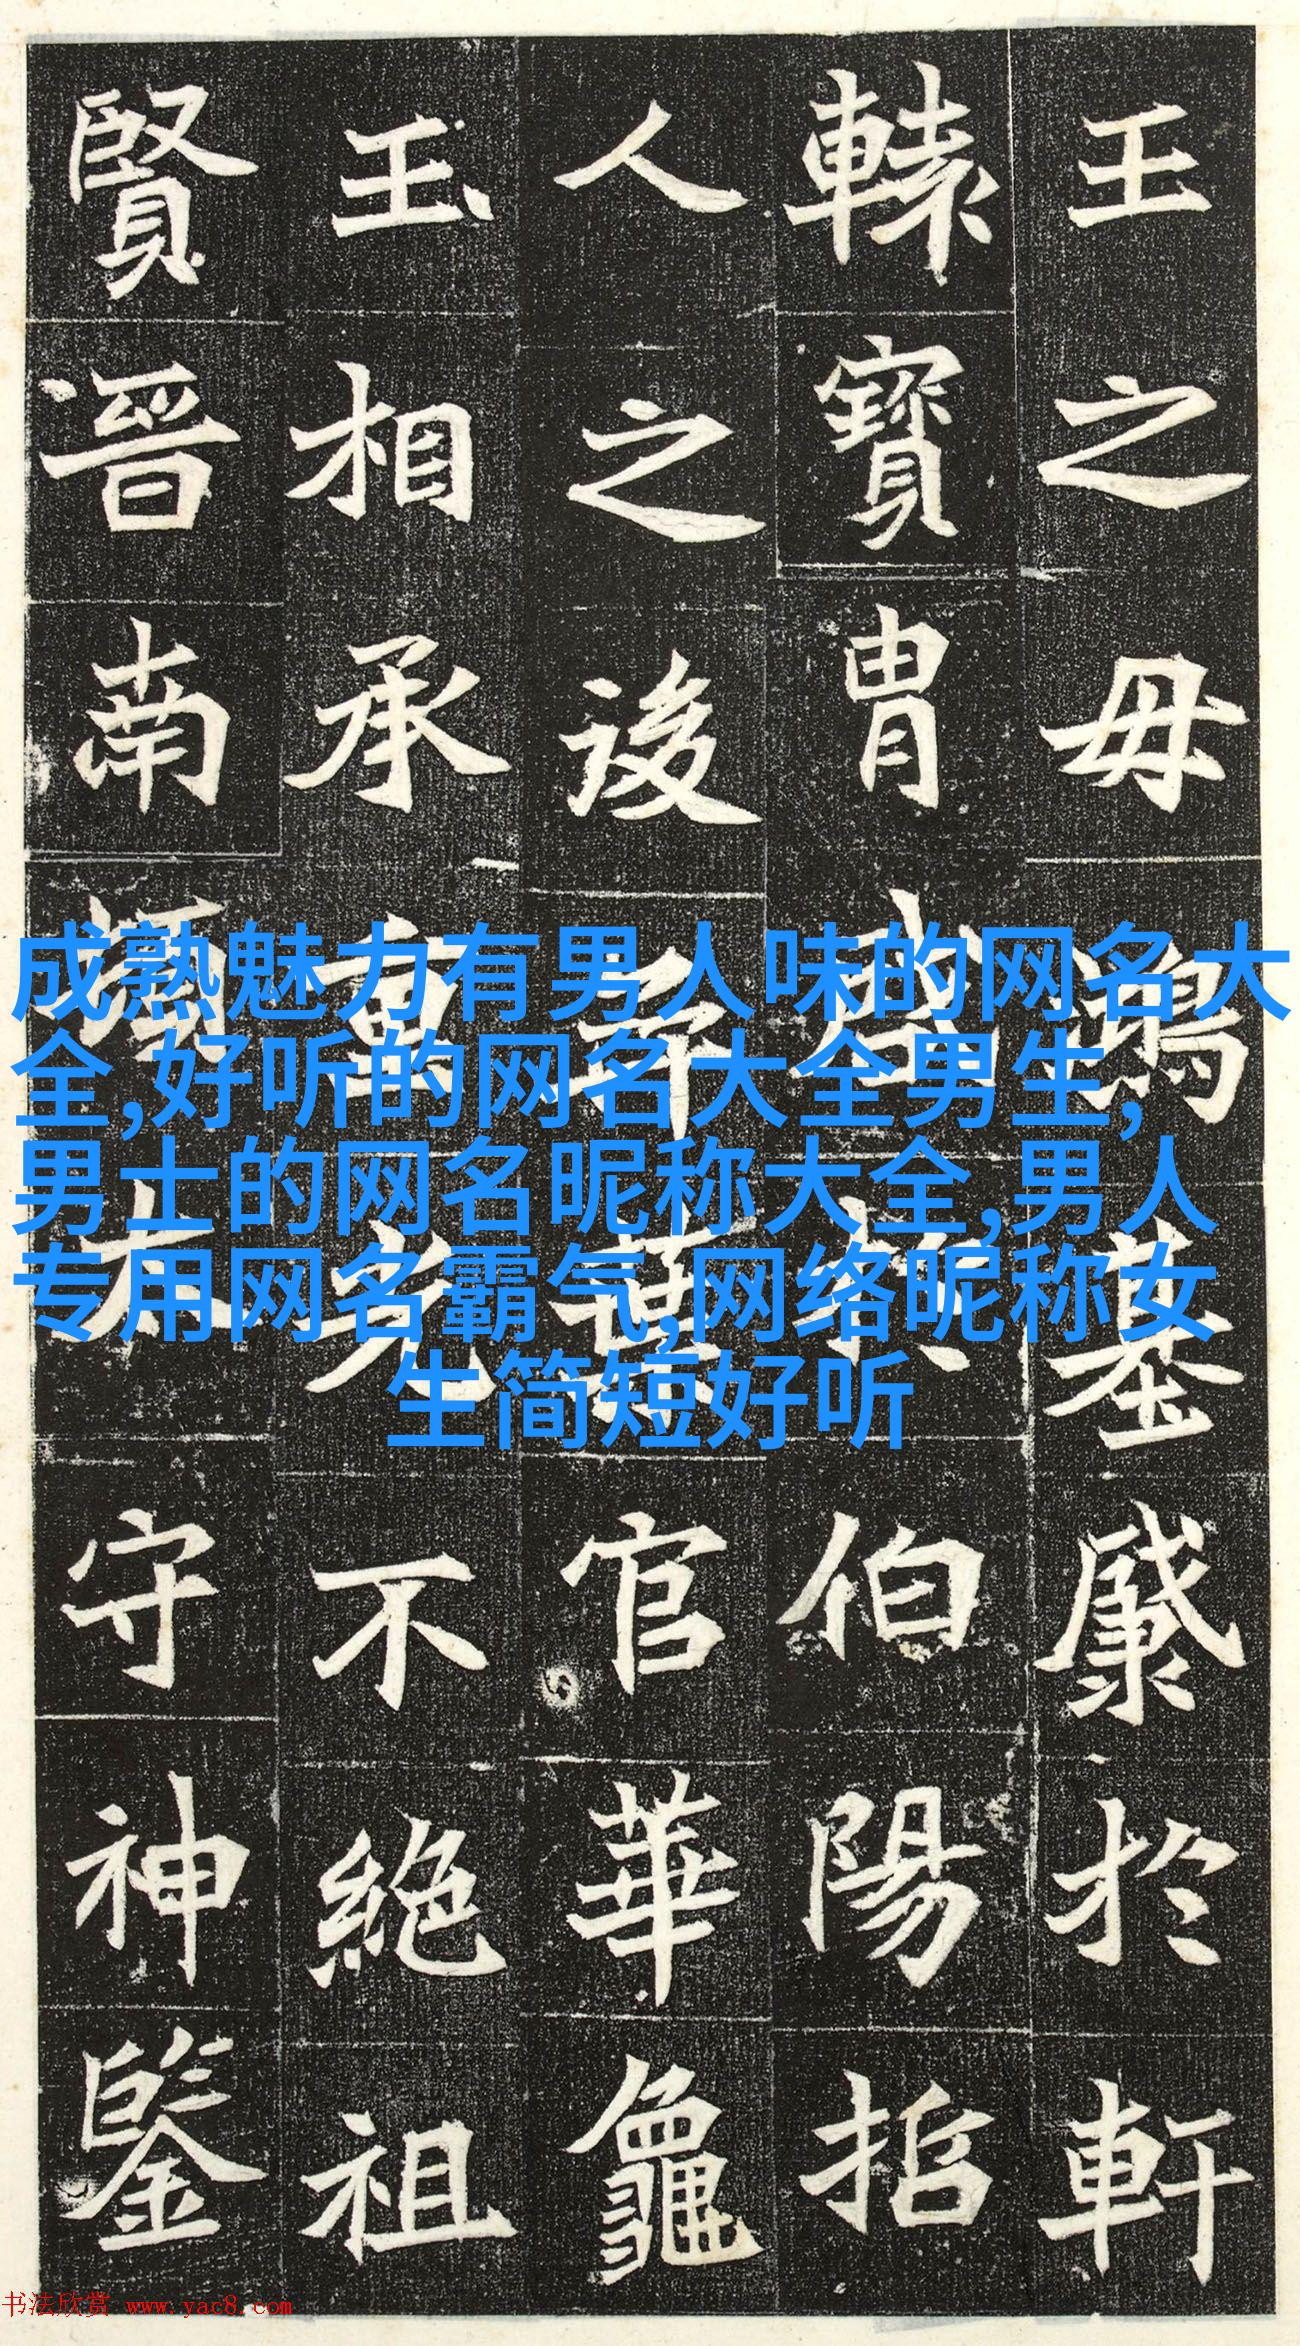 王之母鴻基於軒
轅寶冑盛伯陽指
人之後官華龜
玉相承重光不絕祖
賢晉南頓太守神鑒
成熟魅力有男人味的网名大
全,好听的网名大全男生,
男士的网名昵称大全,男人
专用网名霸气,网络昵称女
生简短好听
书法欣赏 www.yac8.com